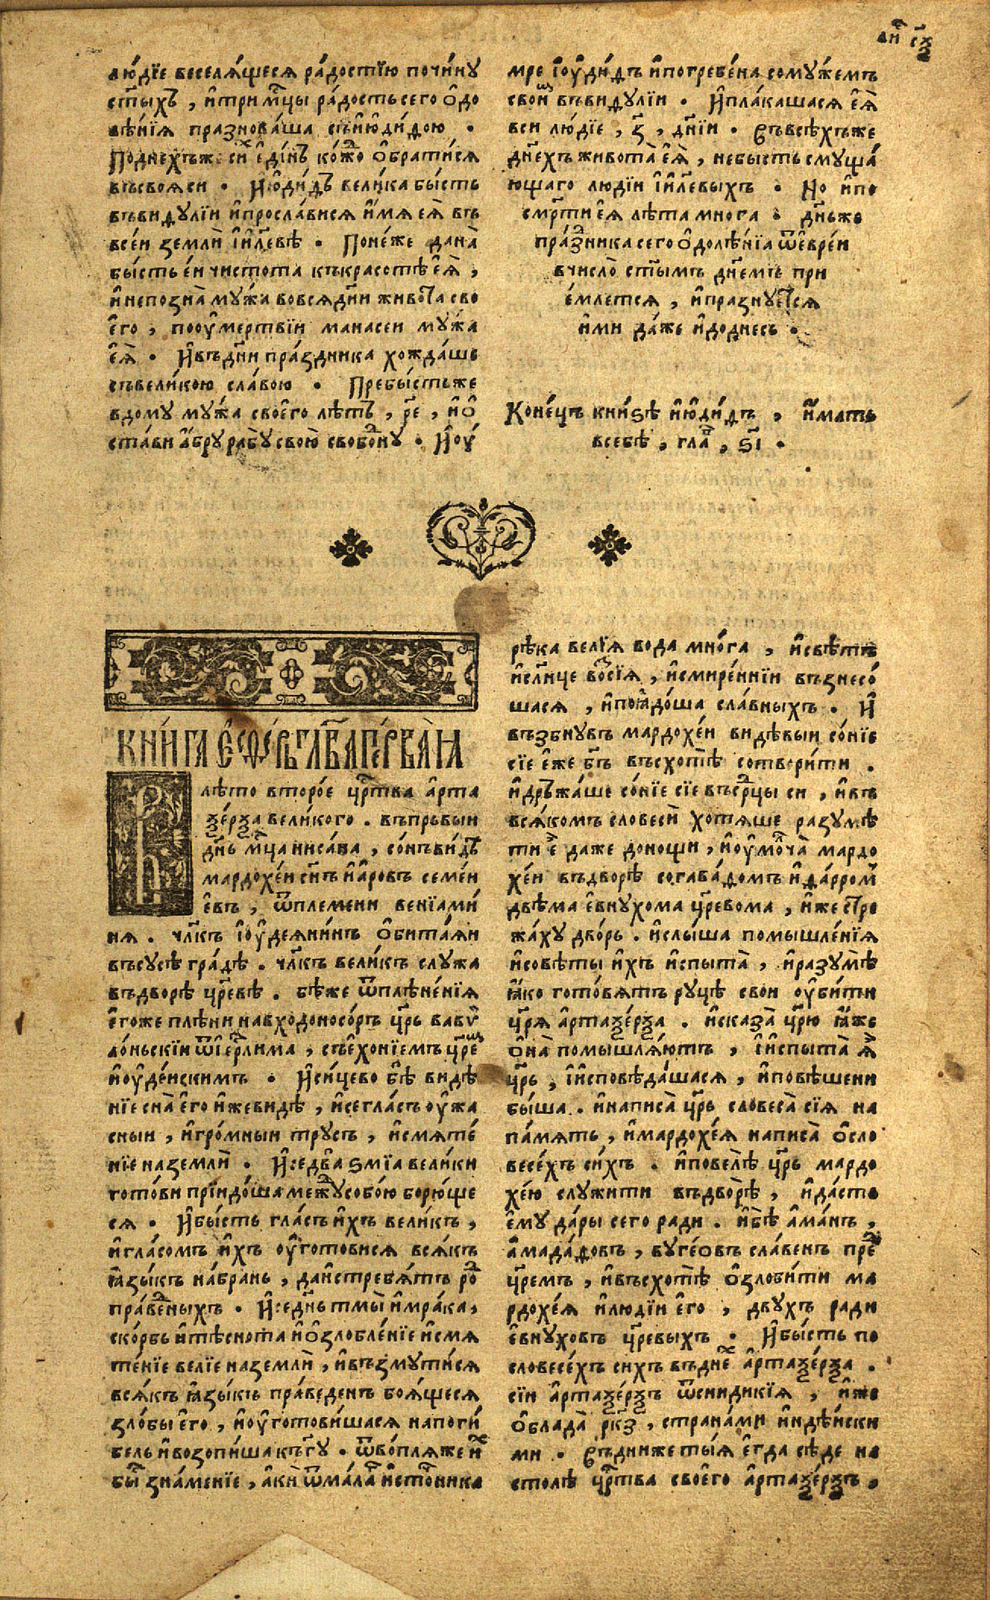 людїе веселѧ́щесѧ ра́достїю почи́ну
ст҃ыхъ , и҆три мц҃ы ра́дость сего ѻ҆до
лѣ́нїѧ празнова́ша съи҆ю҆ди́ѳою .
Поднехъже си́х є҆ди́нъ ко́ждо ѻ҆брати́сѧ
въсвоѧ си . И҆ю҆ди́ѳъ вели́ка бы́сть
въвиѳулїи и҆просла́висѧ и҆́мѧ еѧ̀ въ
всеи землѝ і҆и҃левѣ . Поне́же дана̀
бы́сть е́и чистота къкрасотѣ є҆ѧ̀ ,
и҆непозна̀ му́жа вовсѧдн҃и живота̀ сво
є҆го̀ , поѹ҆мертвїи манасеи му́жа
є҆ѧ̀ . И҆въдн҃и пра́здника хожда́ше
съвели́кою сла́вою . Пребы́стьже
вдому му́жа своє҆го лѣтъ , р҃е , и҆ѻ҆
ста́ви а҆́бру рабу̀ свою̀ свобо́дну . И҆ѹ҆
мре і҆ѹ҆ди́ѳъ и҆погребе́на сому́жемъ
свои́м въвиѳулїи . И҆пла́кашасѧ є҆ѧ̀
вси лю́дїе , з҃ , дн҃їи . Съвсѣ́хъже
дн҃ехъ живота̀ є҆ѧ̀ , небысть смуща́
ющаго людїи і҆и҃левыхъ . Но и҆по
сме́рти еѧ̀ лѣта многа . дн҃ьже
пра́зника сего ѻ҆долѣ́нїа ѿе҆вре́и
вчисло̀ ст҃ы́мъ дн҃емъ при
е́млетсѧ , и҆празну́етсѧ
и҆́ми да́же и҆додне́сь .
Коне́цъ кни́зѣ и҆ю҆ди́ѳъ , и҆́мать
всебѣ̀ , гла́в , ѕ҃і .
КНИ́ГА Е҆СѲИ́РЬ ГЛАВА ПЕ́РВАѦ
В
лѣто второ́е цр҃тва а҆рта
ѯе́рѯа вели́кого . въпрьвыи
дн҃ь мц҃а нисана , со́нъви́дѣ
мардохе́и сн҃ъ и҆а҆и́ровъ семе́и
е҆въ , ѿплемени венїами́
нѧ . чл҃къ і҆ѹ҆деѧни́нъ ѻ҆бита́ѧи
въсусѣ гра́дѣ . чл҃къ вели́къ служа
въдворѣ̀ цр҃евѣ . бѣ́же ѿплѣне́нїѧ
є҆гоже плѣни навходоносо́ръ цр҃ь вавѵ
ло́ньскїи ѿі҆ерⷭ҇лима , съе҆хонїемъ цр҃ем
и҆ѹ҆де́искимъ . И҆си́цево бѣ̀ видѣ́
нїе сна̀ є҆го и҆жеви́дѣ , и҆сегла́съ ѹ҆жа
сныи , и҆гро́мныи тру́съ , и҆смѧте́
нїе наземлѝ . И҆се два̀ ѕмі́а вели́ки
гото́ви прїидо́ша межу́собою борю́ще
сѧ . И҆бы́сть гла́съ и҆́хъ вели́къ ,
и҆гла́сомъ и҆́хъ ѹ҆гото́висѧ всѧ́къ
ꙗ҆зы́къ на́брань , даистребѧ́тъ ро́д
пра́веныхъ . И҆се дн҃ь тмы̀ и҆мра́ка ,
ско́рбь и҆тѣснота и҆ѻ҆злобле́нїе и҆смѧ
те́нїе велїе наземлѝ , и҆възмути́сѧ
всѧ́къ ꙗ҆зы́къ пра́веденъ боѧ́щесѧ
зло́бы є҆го , и҆ѹ҆гото́вишасѧ напоги́
бель и҆возопи́ша къгд҃у . ѿво́плѧже и҆́х
бы́с зна́менїе , а҆ки ѿма́ла и҆сто́чника
рѣка̀ велі́ѧ вода мно́га , и҆свѣ́тъ
и҆сл҃нце восїѧ̀ , и҆смире́ннїи възнесо́
шасѧ , и҆поꙗдо́ша сла́вныхъ . И҆
възбну́въ мардохе́и ви́дѣвыи со́нїе
сїе е҆́же бг҃ъ въсхотѣ̀ сотвори́ти .
и҆дръжа́ше со́нїе сїе въсрⷣцы си , и҆въ
всѧ́комъ словесѝ хотѧ́ше разумѣ́
ти е҆̀ даже доно́щи , и҆ѹ҆молча̀ мардо
хе́и въдворѣ согава́ѳомъ и҆ѳа́рром
двѣ́ма е҆вну́хома цр҃евома , и҆же стре
жа́ху дво́рь . и҆слы́ша помышле́нїѧ
и҆совѣ́ты и҆́хъ и҆спыта̀ , и҆разумѣ̀
ꙗ҆ко гото́вѧтъ ру́цѣ свои ѹ҆би́ти
цр҃ѧ а҆ртаѯе́рѯа . и҆сказа̀ цр҃ю ꙗ҆́же
ѻ҆на̀ помышлѧ́ютъ , і҆и҆спыта̀ ѧ҆̀
цр҃ь , і҆и҆сповѣ́дашасѧ , и҆повѣ́шени
бы́ша . и҆написа̀ цр҃ь словеса̀ сїѧ на
па́мѧть , и҆мардохе́ѧ написа̀ ѻ҆сло
весе́хъ си́хъ . и҆повелѣ̀ цр҃ь мардо
хе́ю служи́ти въдво́рѣ , и҆да́стъ
є҆му да́ры сего ради . и҆бѣ̀ а҆ма́нъ ,
а҆мада́ѳовъ , вуге́овъ сла́венъ пред
цр҃емъ , и҆въсхотѣ̀ ѻ҆злоби́ти ма
рдохе́ѧ и҆людїи є҆го , двухъ ради
е҆вну́ховъ цр҃евыхъ . И҆бы́сть по
словесе́хъ сихъ въдне́х а҆ртаѯе́рѯа .
сїи а҆ртаѯе́рѯъ ѿенидикїѧ , и҆же
ѻ҆блада̀ рк҃з , страна́ми и҆ндѣ́иски
ми . Съдни́же ты́ѧ е҆гда сѣ́де на
столѣ̀ цр҃тва своє҆го а҆ртаѯе́рѯъ ,